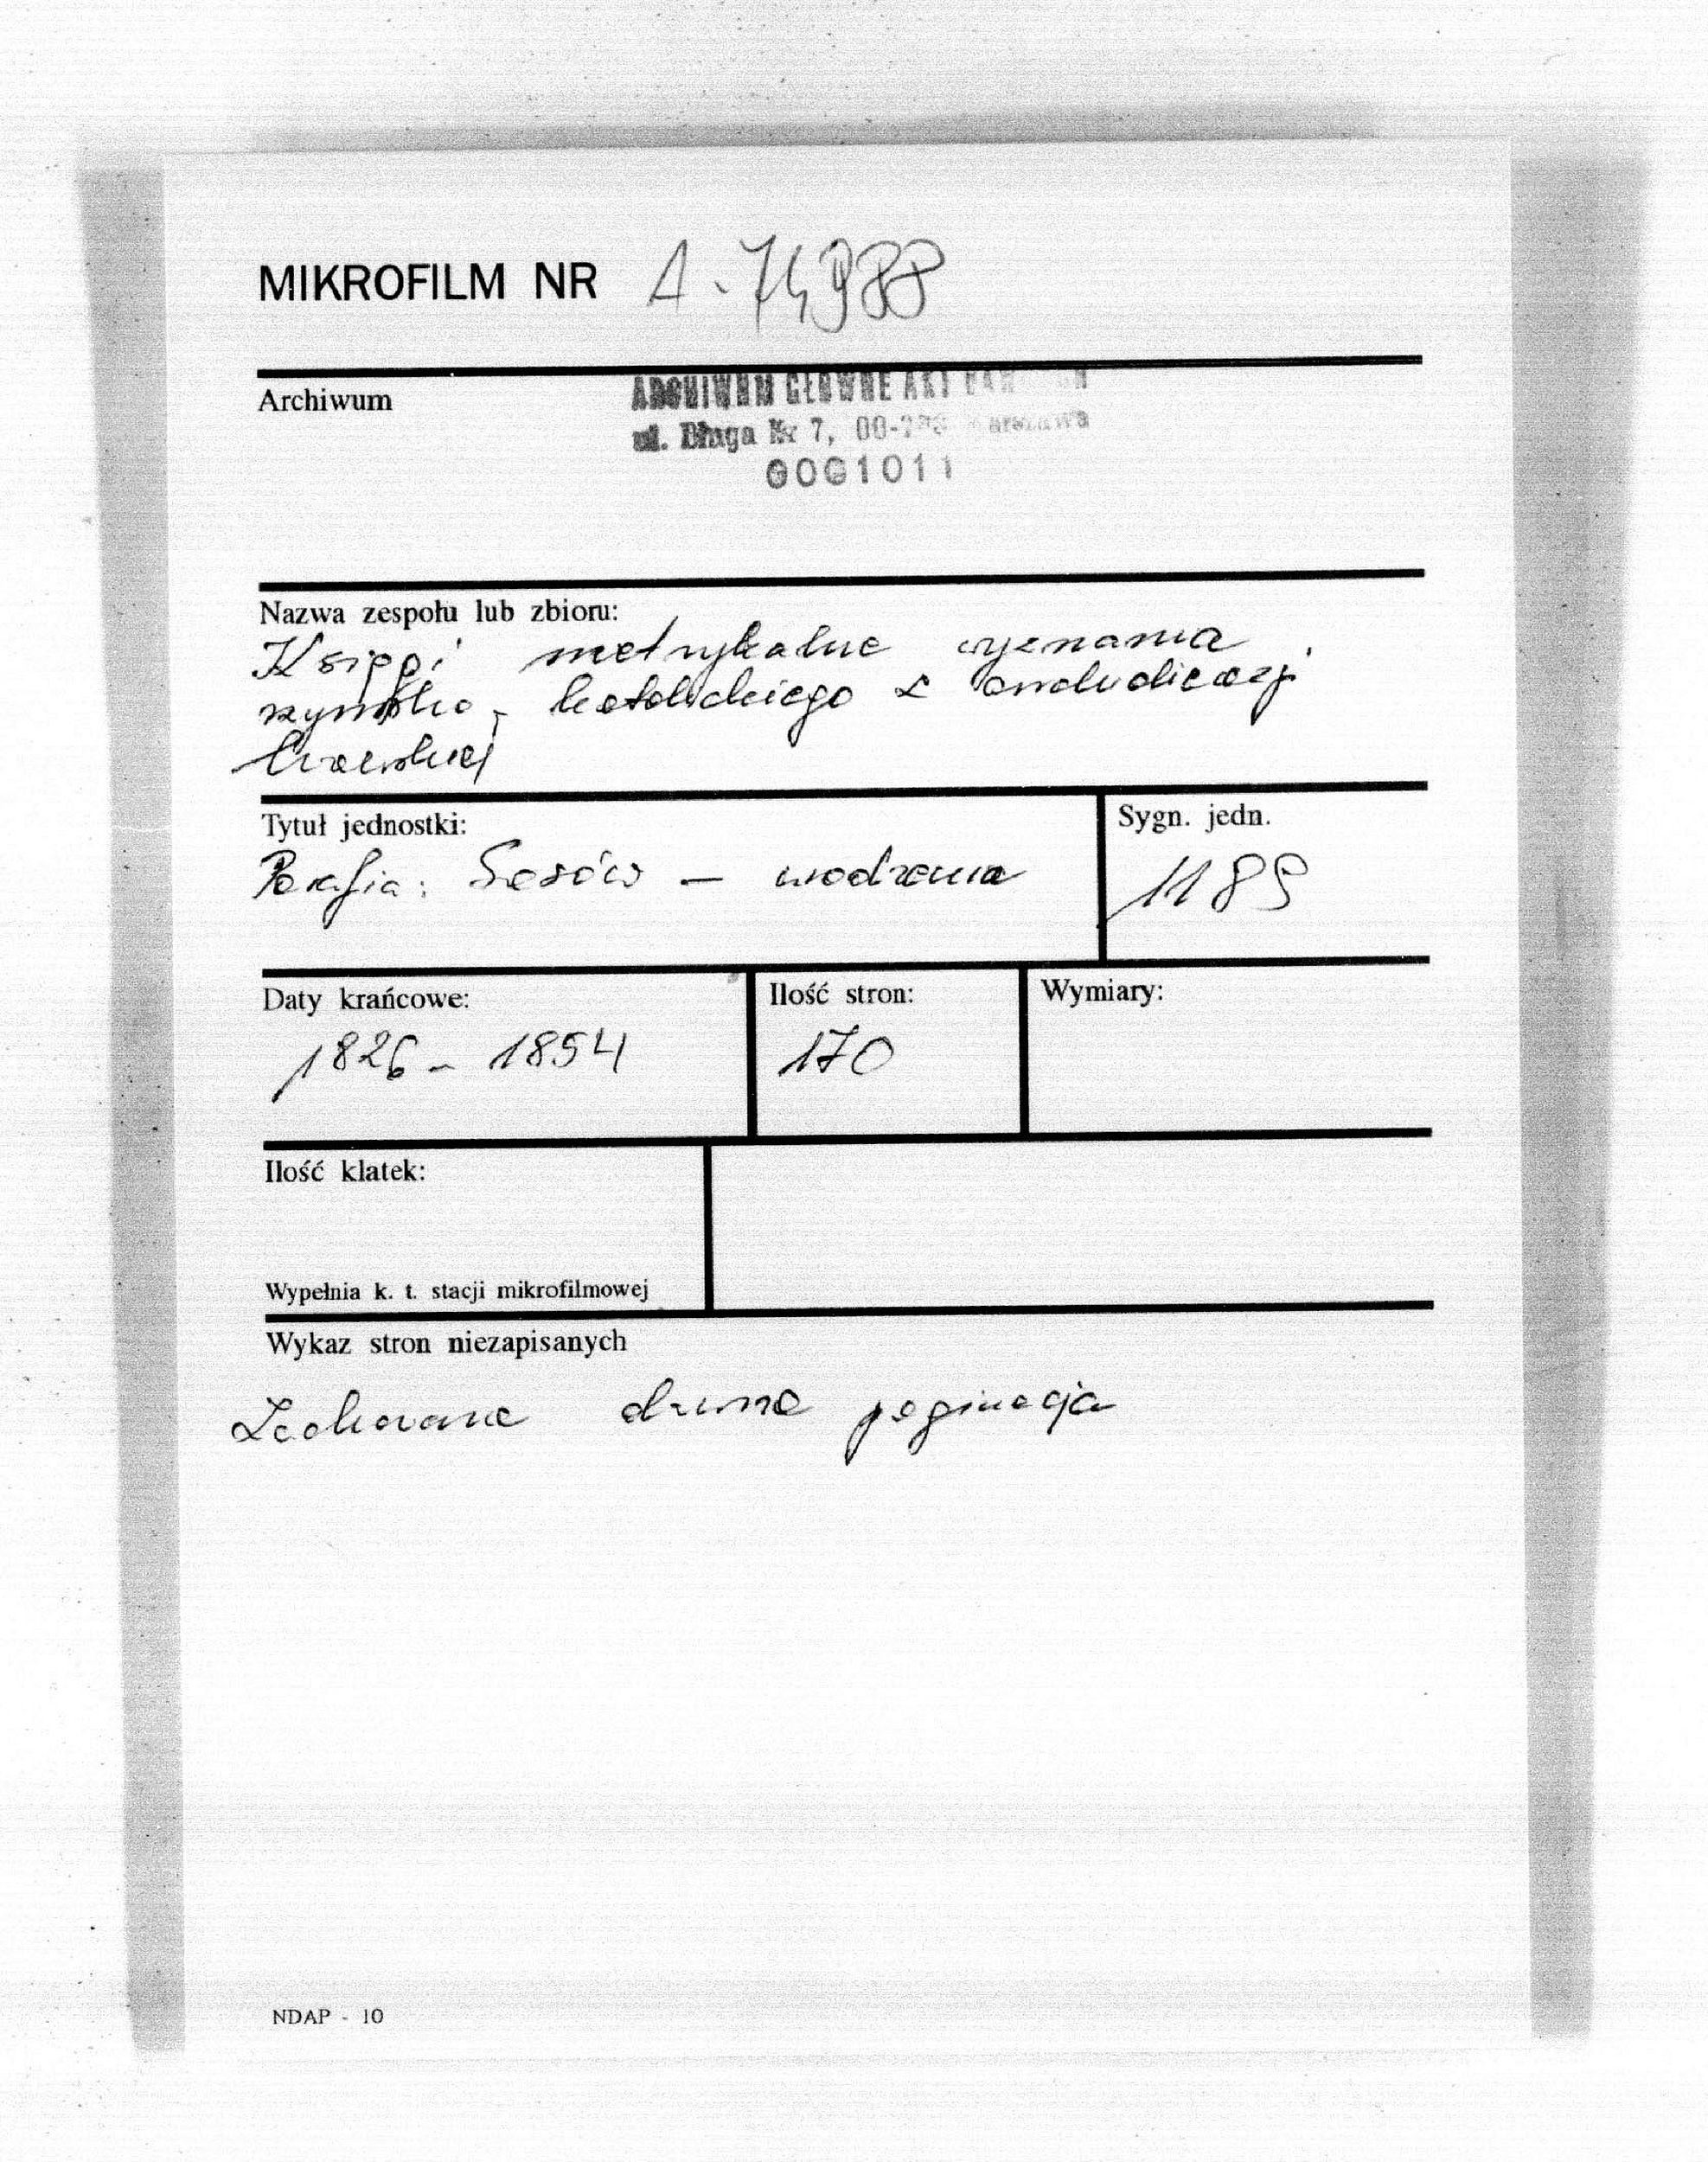 MIKROFILM NR A-74988
Archiwum
ARCHIWUM GŁÓWNE AKT
ul. Długa Nr 7, 00- Warszawa
0001011
Nazwa zespołu lub zbioru:
Księgi metrykalne wyznania
rzymsko-katolickiego z archidiecezji
lwowskiej
Tytuł jednostki:
Parafia: Sasów — urodzenia
Sygn. jedn.
1189
Daty krańcowe:
1826-1854
Ilość stron:
170
Wymiary:
Ilość klatek:
Wypełnia k. t. stacji mikrofilmowej
Wykaz stron niezapisanych
Zachowano dawną paginację
NDAP - 10